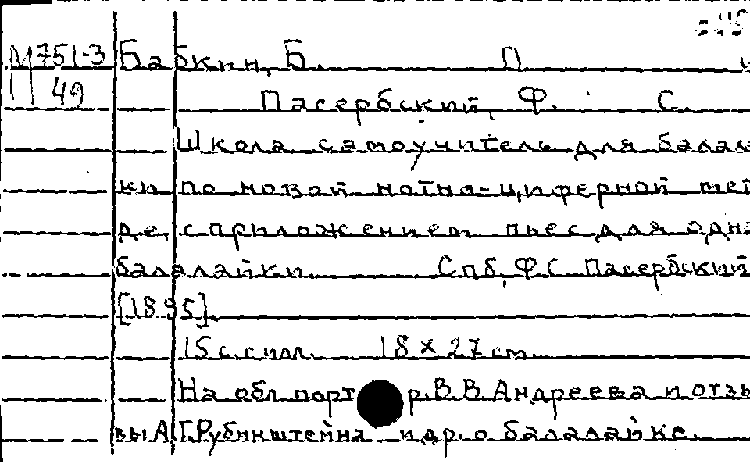 М751-3 Бабкин, Б. П. и
П 49 Пасербский, Ф. С.
Школа самоучитель для балалай
ки по новой нотна-циферной мето
де, с приложением пьес для одной
балалайки. Спб, Ф С Пасербский
[1895].
15 с. с илл. 18 × 27 cm
На обл портр. В. В Андреева и отзы
вы А Г. Рубинштейна и др. о балалайке.